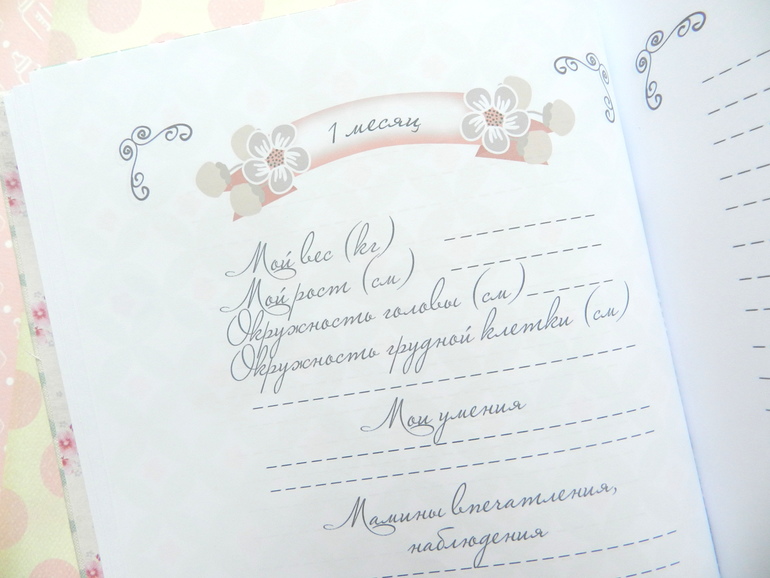 1 месяц
Мой вес (кг)
Мой рост (см)
Окружность головы (см)
Окружность грудной клетки (см)
Мои умения
Мамины впечатления,
наблюдения